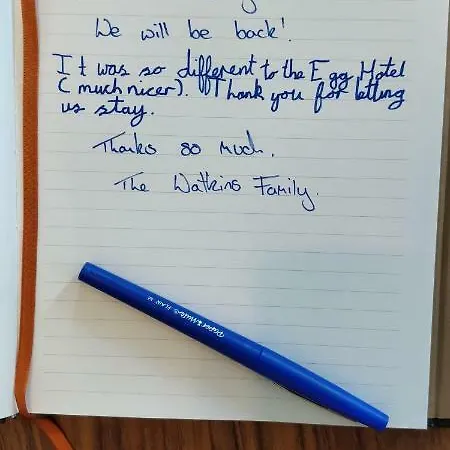 We will be back!
It was so different to the Egg Hotel
(much nicer). Thank you for letting
us stay.
Thanks so much.
The Watkins Family.
Paper:Mate FLAIR M